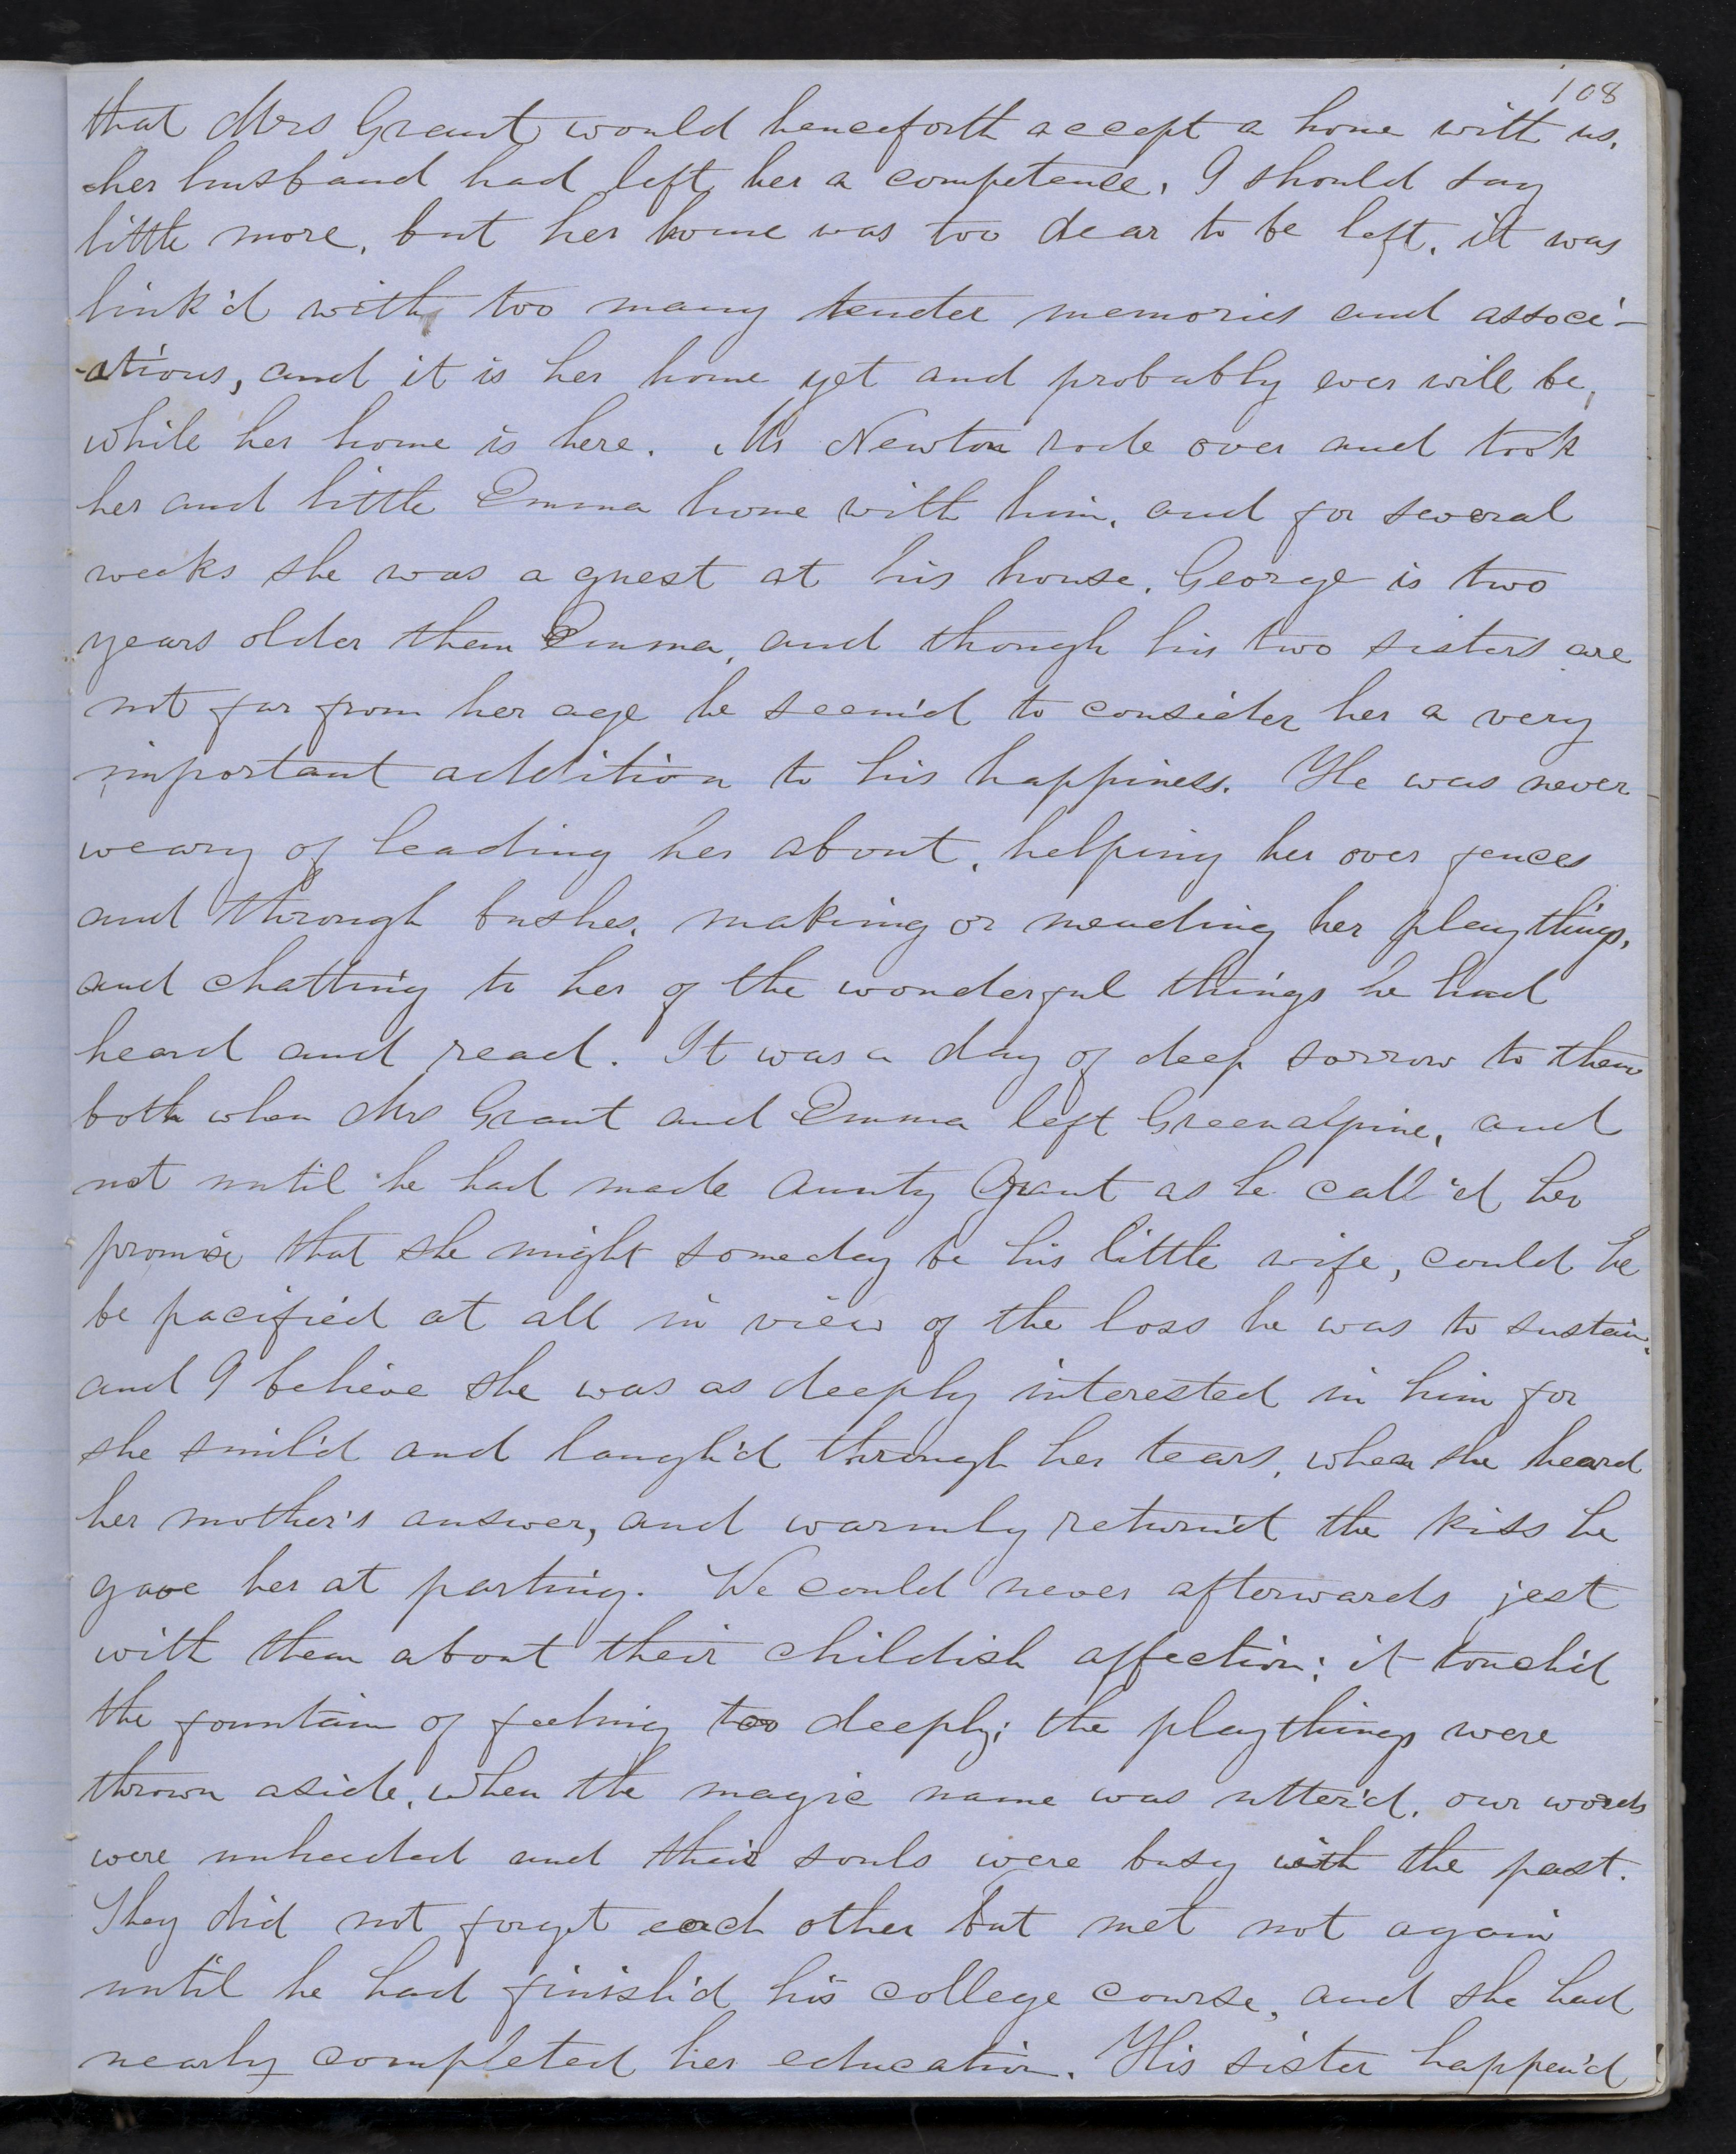 108
that Mrs Grant would henceforth accept a home with us,
her husband had left her a competence, I should say
little more, but her home was too dear to be left, it was
link'd with too many tender memories and associ-
-ations, and it is her home yet and probably ever will be,
while her home is here. Mr Newton rode over and took
her and little Emma home with him, and for several
weeks she was a guest at his house. George is two
years older than Emma, and though his two sisters are
not far from her age he seem'd to consider her a very
important addition to his happiness. He was never
weary of leading her about, helping her over fences
and through bushes, making or mending her playthings,
and chatting to her of the wonderful things he had
heard and read. It was a day of deep sorrow to them
both when Mrs Grant and Emma left Greenalpine, and
not until he had made Aunty Grant as he call'd her
promise that she might someday be his little wife, could he
be pacified at all in view of the loss he was to sustain,
and I believe she was as deeply interested in him for
she smil'd and laugh'd through her tears, when she heard
her mother's answer, and warmly return'd the kiss he
gave her at parting. We could never afterwards jest
with them about their childish affection; it touch'd
the fountain of feeling too deeply; the playthings were
thrown aside, when the magic name was utter'd, our words
were unheeded and their souls were busy with the past.
They did not forget each other but met not again
until he had finish'd his college course, and she had
nearly completed her education. His sister happen'd